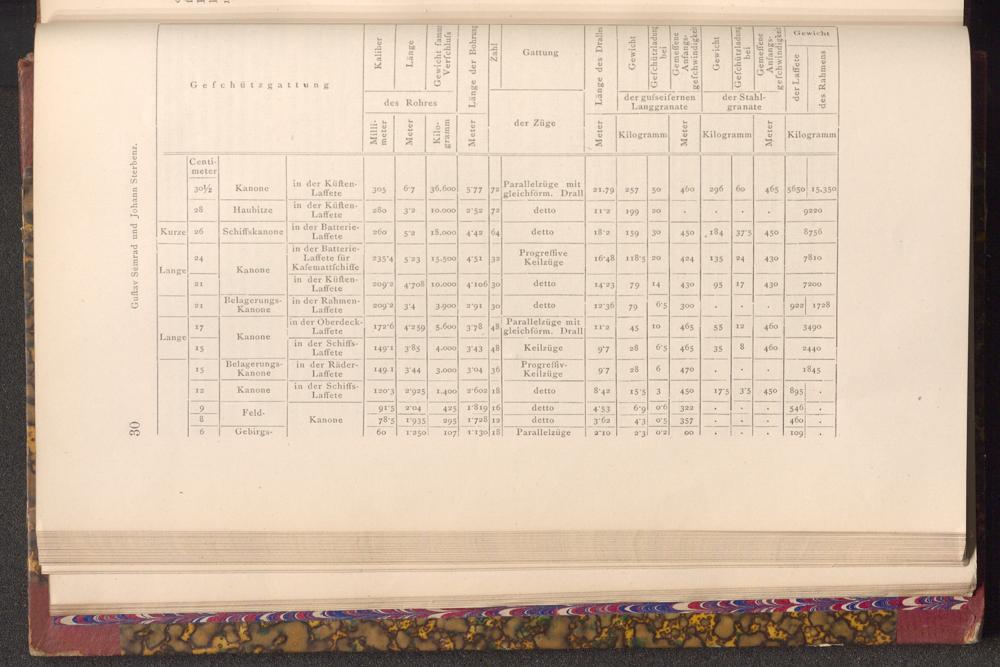 30
Guſtav Semrad und Johann Sterbenz.
Geſchützgattung
Kaliber
Länge
Gewicht ſammt Verſchluſs
des Rohres
Länge der Bohrung
Zahl
Gattung
der Züge
Länge des Dralls
Gewicht
Geſchützladung bei
Gemeſſene Anfangs-geſchwindigkeit
der guſseiſernen Langgranate
Gewicht
Geſchützladung bei
Gemeſſene Anfangs-geſchwindigkeit
der Stahl-granate
Gewicht
der Laffete
des Rahmens
Milli-meter
Meter
Kilo-gramm
Meter
Meter
Kilogramm
Meter
Kilogramm
Meter
Kilogramm
Centi-meter
30½ Kanone in der Küſten-Laffete 305 6·7 36,600 5·77 72 Parallelzüge mit gleichförm. Drall 21.79 257 50 460 296 60 465 5650 15.350
28 Haubitze in der Küſten-Laffete 280 3·2 10.000 2·52 72 detto 11·2 199 20 . . . . 9220
Kurze 26 Schiffskanone in der Batterie-Laffete 260 5·2 18,000 4·42 64 detto 18·2 159 30 450 184 37·5 450 8756
Lange 24 Kanone in der Batterie-Laffete für Kaſemattſchiffe 235·4 5·23 15,500 4·51 32 Progreſſive Keilzüge 16·48 118·5 20 424 135 24 430 7810
21 in der Küſten-Laffete 209·2 4·708 10.000 4·106 30 detto 14·23 79 14 430 95 17 430 7200
21 Belagerungs-Kanone in der Rahmen-Laffete 209·2 3·4 3.900 2·91 30 detto 12·36 79 6·5 300 . . . 922 1728
Lange 17 Kanone in der Oberdeck-Laffete 172·6 4·259 5,600 3·78 48 Parallelzüge mit gleichförm. Drall 11·2 45 10 465 55 12 460 3490
15 in der Schiffs-Laffete 149·1 3·85 4.000 3·43 48 Keilzüge 9·7 28 6·5 465 35 8 460 2440
15 Belagerungs-Kanone in der Räder-Laffete 149.1 3·44 3.000 3·04 36 Progreſſiv-Keilzüge 9·7 28 6 470 . . . 1845
12 Kanone in der Schiffs-Laffete 120·3 2·925 1.400 2·602 18 detto 8·42 15·5 3 450 17·5 3·5 450 895 .
9 Feld- Kanone 91·5 2·04 425 1·819 16 detto 4·53 6·9 0·6 322 . . . 546 .
8 78·5 1·935 295 1·728 12 detto 3·62 4·3 0·5 357 . . . 460 .
6 Gebirgs- 60 1·250 107 1·130 18 Parallelzüge 2·10 2·3 0·2 . . . 109 .